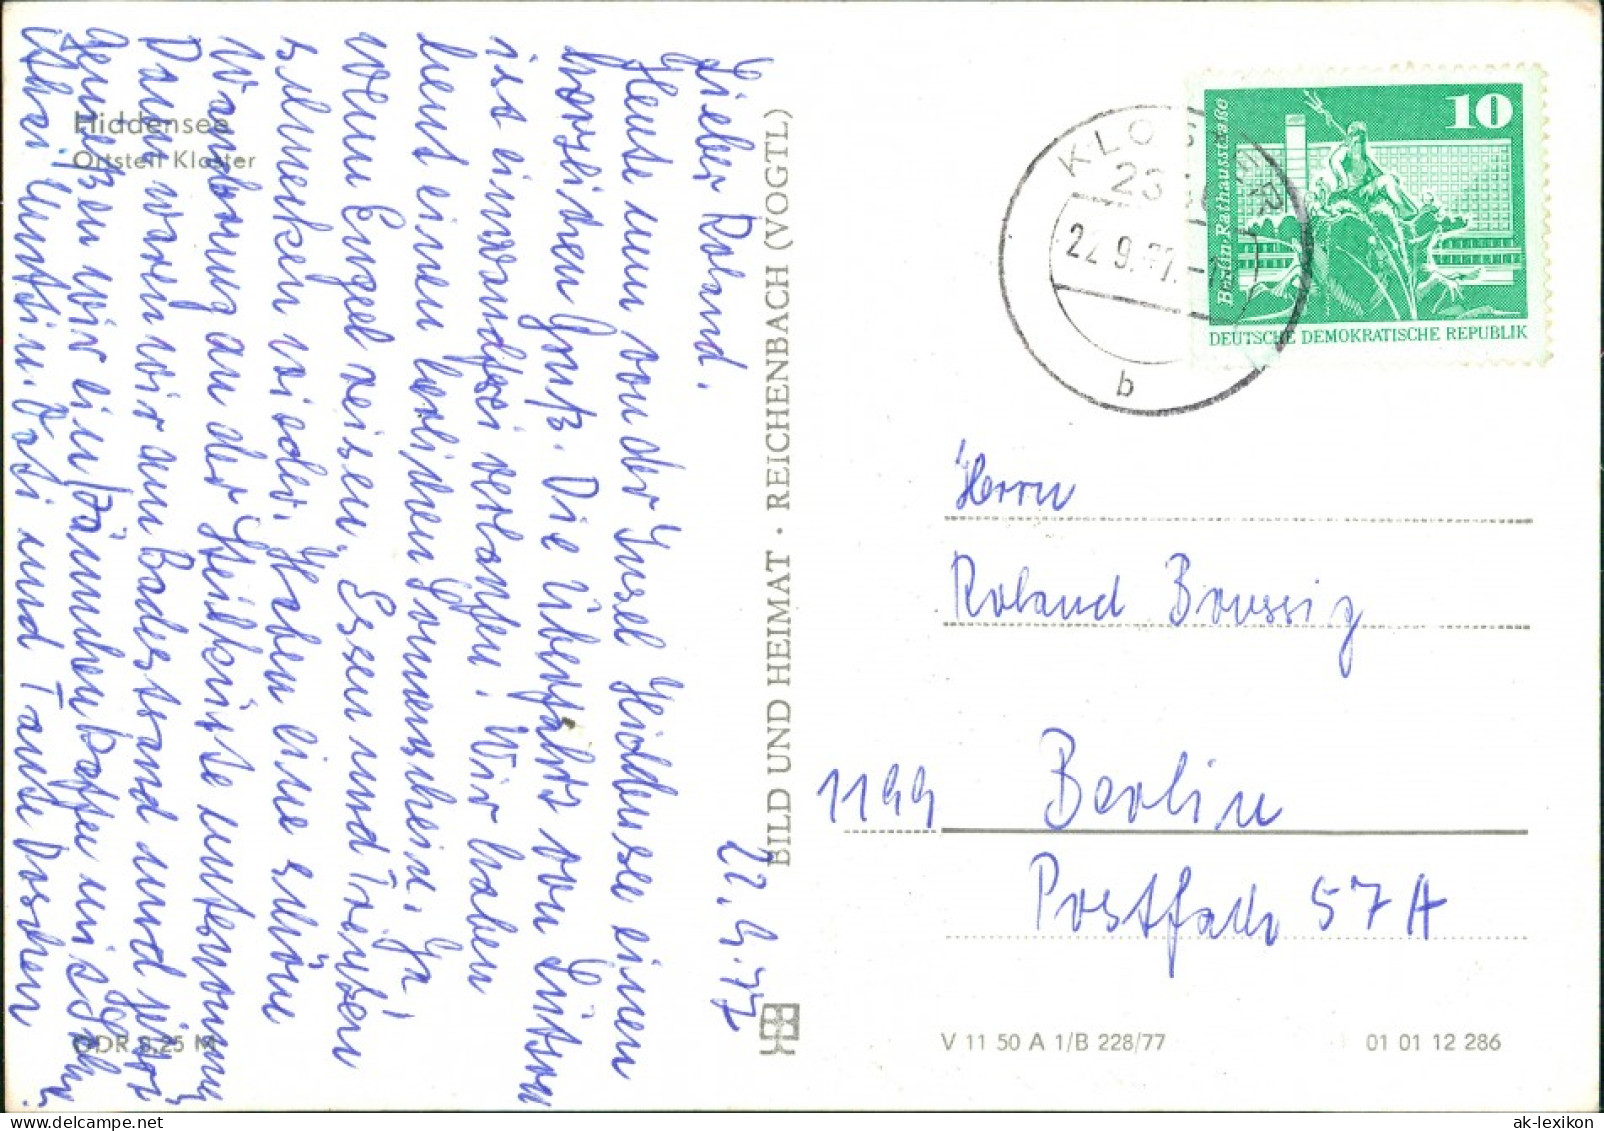 Hiddensee
Ortsteil Kloster
22.9.77
Lieber Roland.
Heute nun von der Insel Hiddensee einen
herzlichen Gruß. Die Überfahrt von
ist einwandfrei verlaufen. Wir haben
heut einen herlichen Sonnenschein. Ja!
wenn Engel reisen. Essen und Trinken
schmecken wieder. Haben eine schöne
Wandrung an der Steilküste unternommen
Dann waren wir am Badestrand und jetzt
genießen wir ein Kaffee mit
und Tante
DDR 0,25 M
BILD UND HEIMAT · REICHENBACH (VOGTL)
KLOSTER
22.9.77.
b
10
Berlin·Rathausstraße
DEUTSCHE DEMOKRATISCHE REPUBLIK
Herrn
Roland Boussig
1199 Berlin
Postfach 57A
V 11 50 A 1/B 228/77
01 01 12 286
ak-lexikon